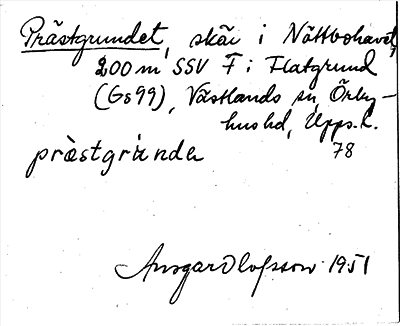 Prästgrundet, skär i Nöttbohavet,
200 m SSV F i Flatgrund
(Gs 99), Västlands sn, Örby-
hus hd, Upps. l.
pràstgrùnda 78
Ansgar Olofsson 1951